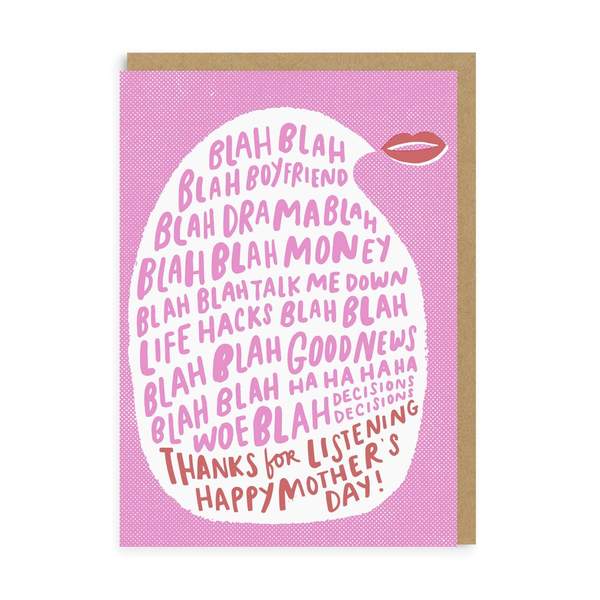 BLAH BLAH
BLAH BOYFRIEND
BLAH DRAMA BLAH
BLAH BLAH MONEY
BLAH BLAH TALK ME DOWN
LIFE HACKS BLAH BLAH
BLAH BLAH GOOD NEWS
BLAH BLAH HA HA HA HA
WOE BLAH DECISIONS
DECISIONS
THANKS for LISTENING
HAPPY MOTHER'S
DAY!